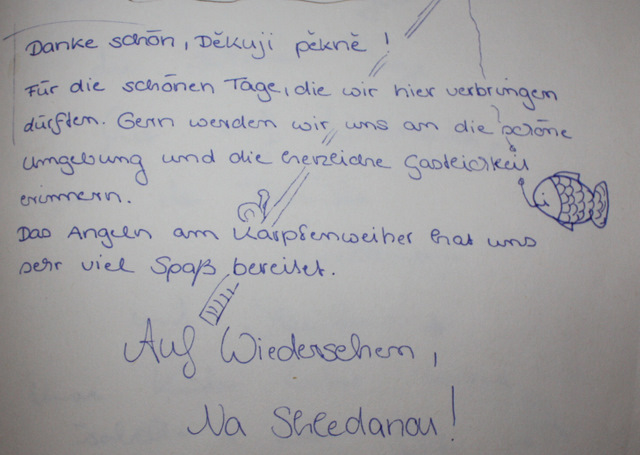 Danke schön, Děkuji pěkně !
Für die schönen Tage, die wir hier verbringen
dürften. Gern werden wir uns an die schöne
Umgebung und die herzliche Gastlichkeit
erinnern.
Das Angeln am Karpfenweiher hat uns
sehr viel Spaß bereitet.
Auf Wiedersehen,
Na Shledanou!